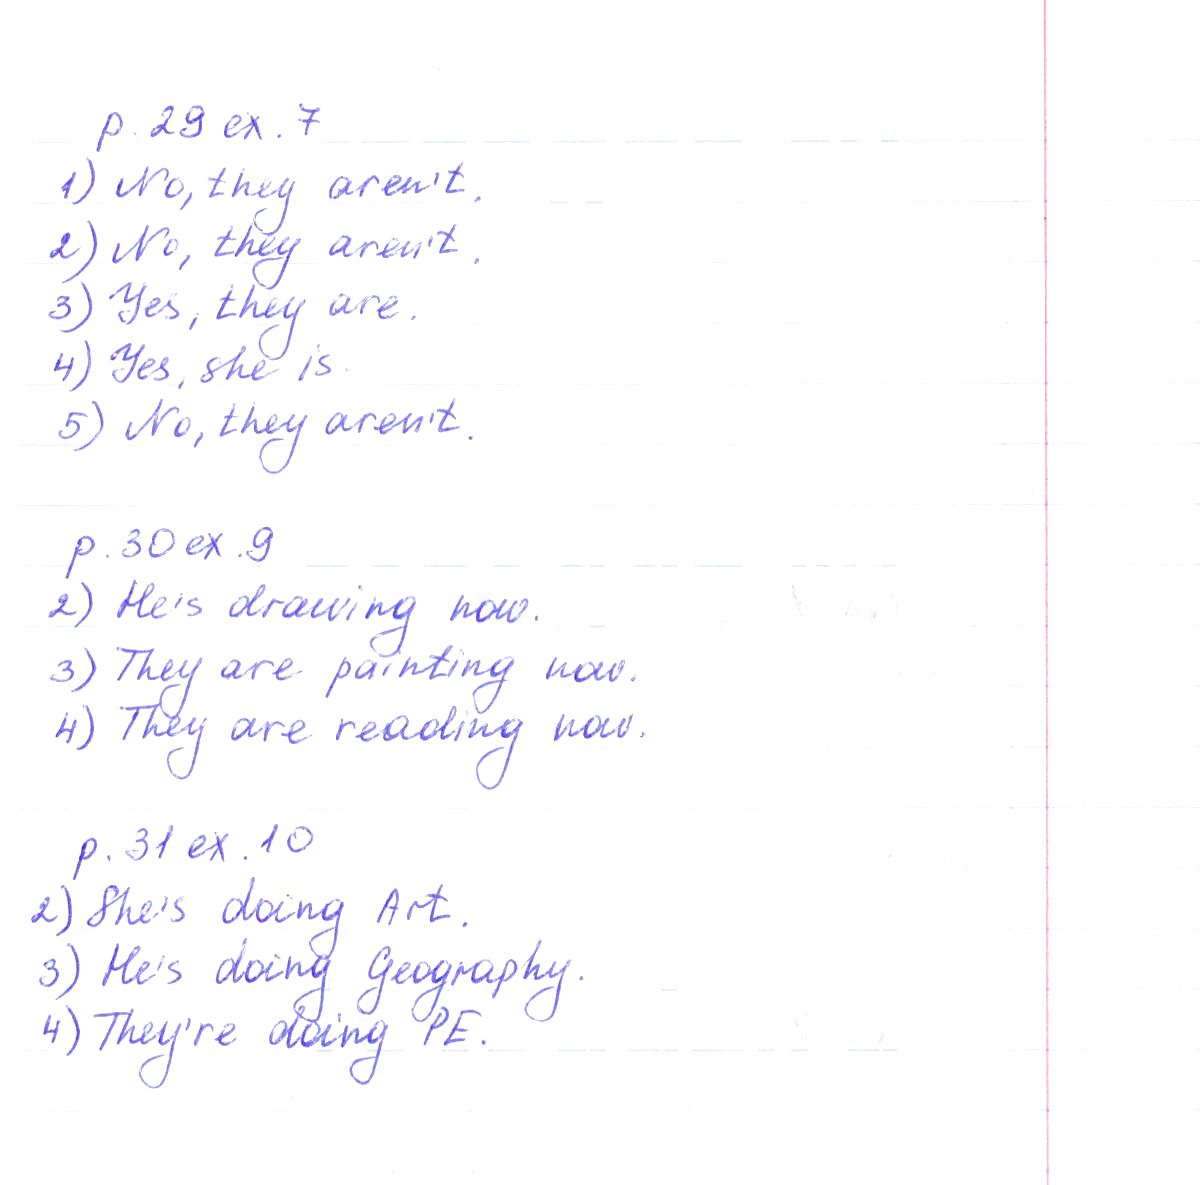 p. 29 ex. 7
1) No, they aren't.
2) No, they aren't.
3) Yes, they are.
4) Yes, she is.
5) No, they aren't.
p. 30 ex. 9
2) He's drawing now.
3) They are painting now.
4) They are reading now.
p. 31 ex. 10
2) She's doing Art.
3) He's doing Geography.
4) They're doing PE.